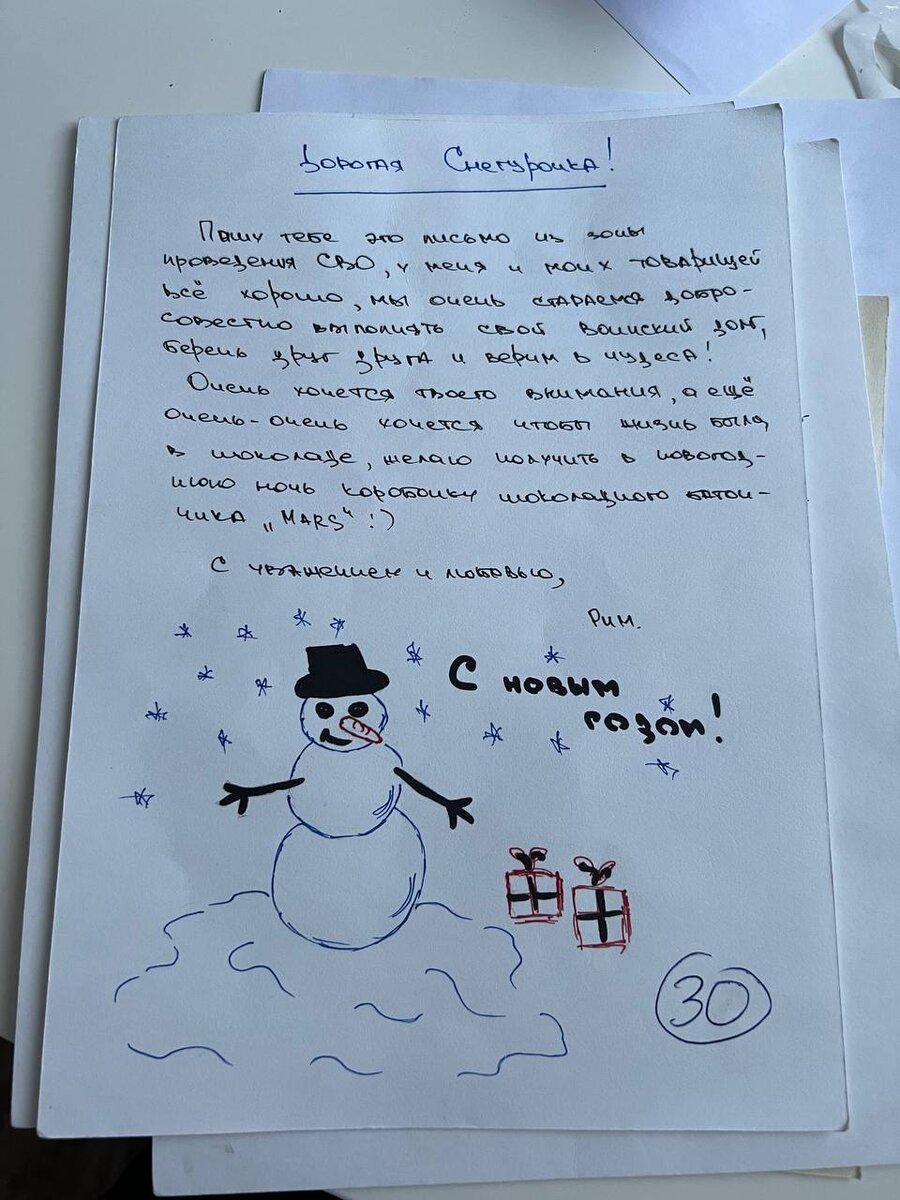 Дорогая Снегурочка!
Пишу тебе это письмо из зоны
проведения СВО, у меня и моих товарищей
всё хорошо, мы очень стараемся добро-
совестно выполнять свой воинский долг,
беречь друг друга и верим в чудеса!
Очень хочется твоего внимания, а ещё
очень-очень хочется чтобы жизнь была
в шоколаде, желаю получить в новогод-
нюю ночь коробочку шоколадного батон-
чика „MARS“ :)
С уважением и любовью,
Рим.
С новым
годом!
30